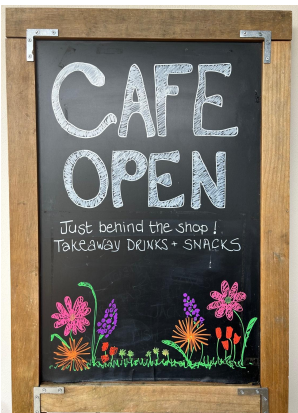 CAFE
OPEN
Just behind the shop!
TAKEAWAY DRINKS + SNACKS